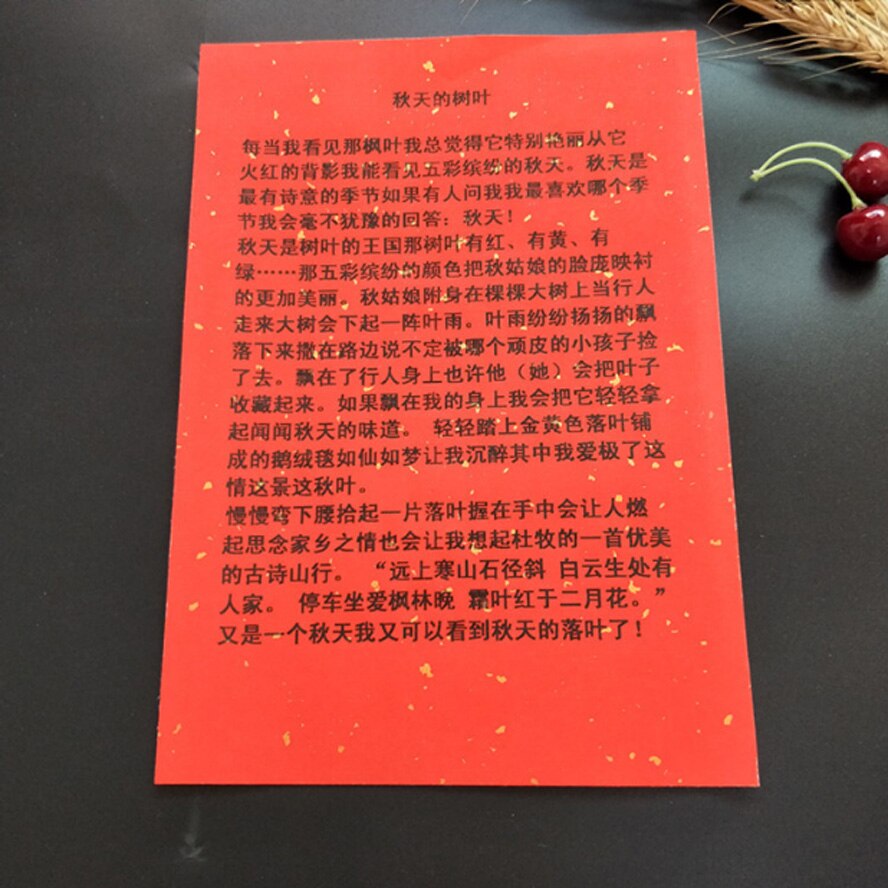 秋天的树叶
每当我看见那枫叶我总觉得它特别艳丽从它
火红的背影我能看见五彩缤纷的秋天。秋天是
最有诗意的季节如果有人问我我最喜欢哪个季
节我会毫不犹豫的回答：秋天！
秋天是树叶的王国那树叶有红、有黄、有
绿……那五彩缤纷的颜色把秋姑娘的脸庞映衬
的更加美丽。秋姑娘附身在棵棵大树上当行人
走来大树会下起一阵叶雨。叶雨纷纷扬扬的飘
落下来撒在路边说不定被哪个顽皮的小孩子捡
了去。飘在了行人身上也许他（她）会把叶子
收藏起来。如果飘在我的身上我会把它轻轻拿
起闻闻秋天的味道。 轻轻踏上金黄色落叶铺
成的鹅绒毯如仙如梦让我沉醉其中我爱极了这
情这景这秋叶。
慢慢弯下腰拾起一片落叶握在手中会让人燃
起思念家乡之情也会让我想起杜牧的一首优美
的古诗山行。 “远上寒山石径斜 白云生处有
人家。 停车坐爱枫林晚 霜叶红于二月花。”
又是一个秋天我又可以看到秋天的落叶了！